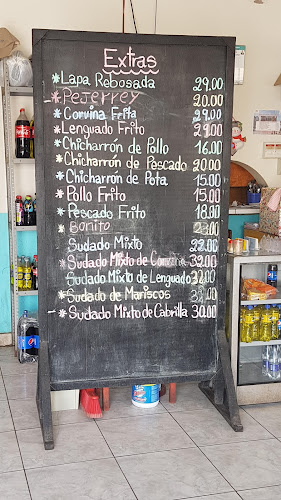 Extras
* Lapa Rebosada 29.00
* Pejerrey 20.00
* Corvina Frita 29.00
* Lenguado Frito 29.00
* Chicharrón de Pollo 16.00
* Chicharrón de Pescado 20.00
* Chicharrón de Pota 15.00
* Pollo Frito 15.00
* Pescado Frito 18.00
* Bonito
* Sudado Mixto
* Sudado Mixto de 32.00
* Sudado Mixto de Lenguado
* Sudado de Mariscos
* Sudado Mixto de Cabrilla 30.00